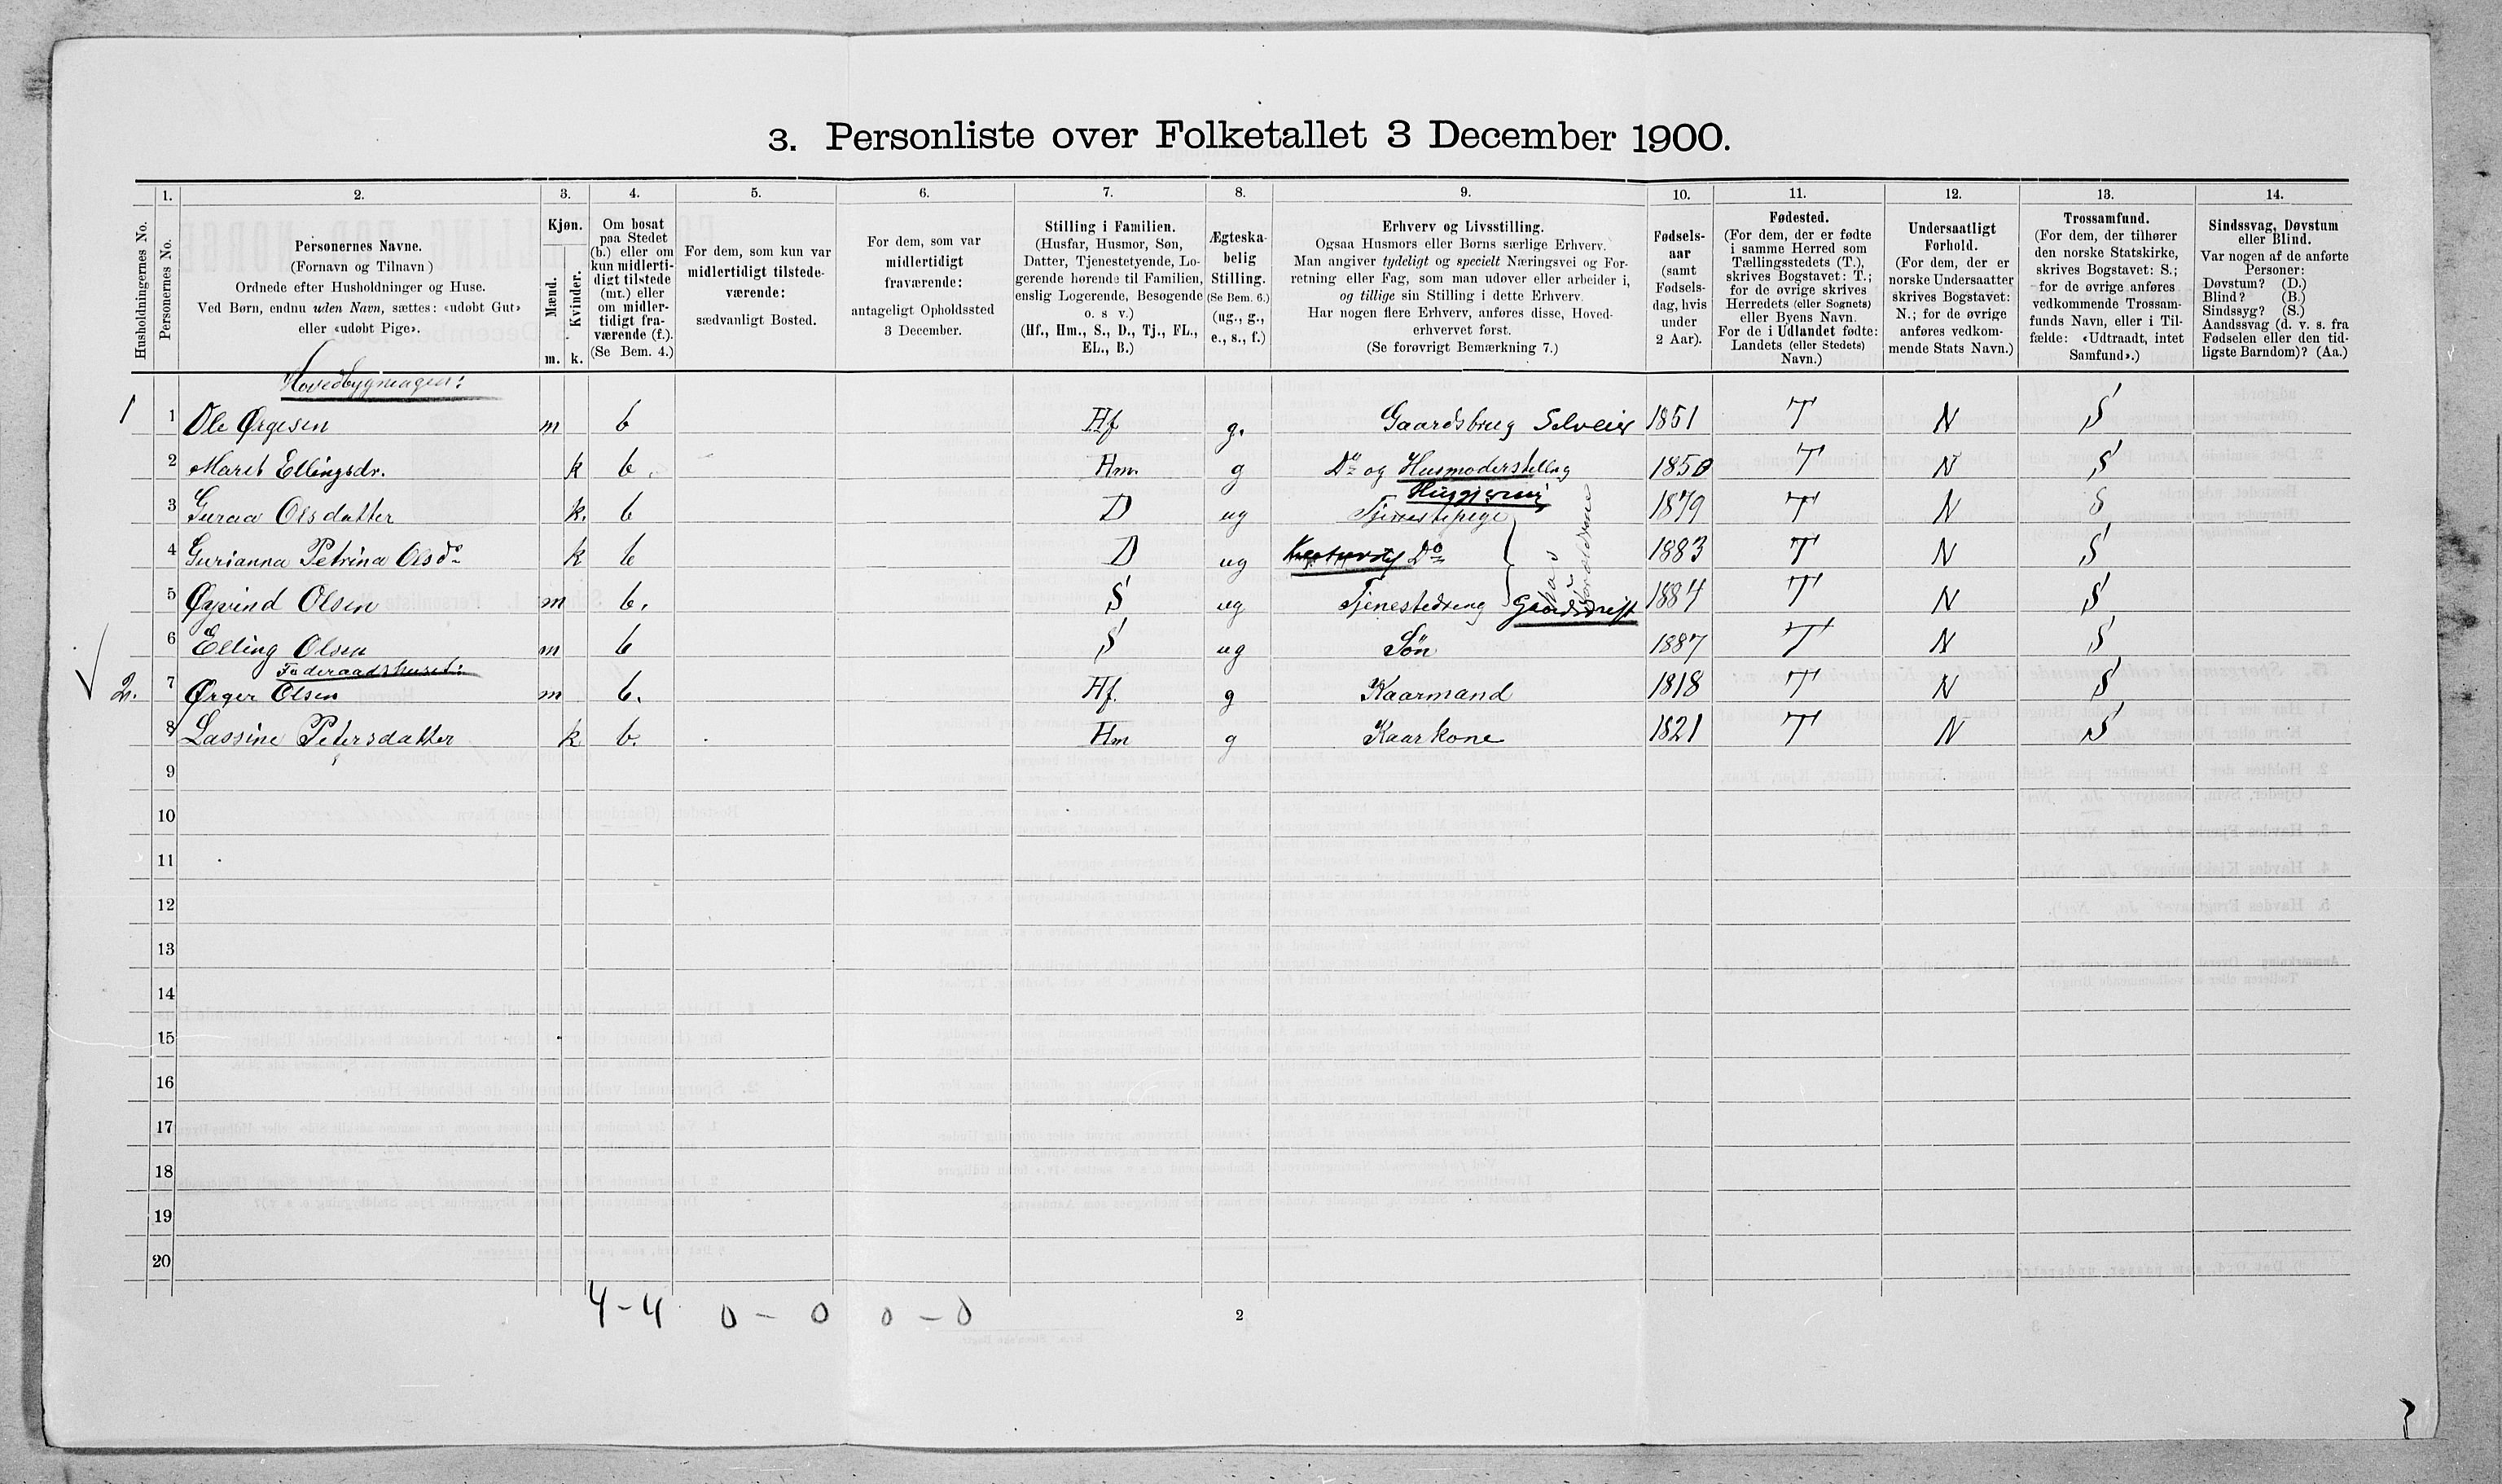 3. Personliste over Folketallet 3 December 1900.
Husholdningernes No.
1.
Personernes No.
2.
Personernes Navne.
(Fornavn og Tilnavn)
Ordnede efter Husholdninger og Huse.
Ved Børn, endnu uden Navn, sættes: «udøbt Gut»
eller «udøbt Pige».
3.
Kjøn.
Mænd.
Kvinder.
m. k.
4.
Om bosat
paa Stedet
(b.) eller om
kun midlerti-
digt tilstede
(mt.) eller
om midler-
tidigt fra-
værende (f.).
(Se Bem. 4.)
5.
For dem, som kun var
midlertidigt tilstede-
værende:
sædvanligt Bosted.
6.
For dem, som var
midlertidigt
fraværende:
antageligt Opholdssted
3 December.
7.
Stilling i Familien.
(Husfar, Husmor, Søn,
Datter, Tjenestetyende, Lo-
gerende hørende til Familien,
enslig Logerende, Besøgende
o. s. v.)
(Hf., Hm., S., D., Tj., FL.,
EL., B.)
8.
Ægteska-
belig
Stilling.
(Se Bem. 6.)
(ug., g.,
e., s., f.)
9.
Erhverv og Livsstilling.
Ogsaa Husmors eller Børns særlige Erhverv.
Man angiver tydeligt og specielt Næringsvei og For-
retning eller Fag, som man udøver eller arbeider i,
og tillige sin Stilling i dette Erhverv.
Har nogen flere Erhverv, anføres disse, Hoved-
erhvervet først.
(Se forøvrigt Bemærkning 7.)
10.
Fødsels-
aar
(samt
Fødsels-
dag, hvis
under
2 Aar).
11.
Fødested.
(For dem, der er fødte
i samme Herred som
Tællingsstedets (T.),
skrives Bogstavet: T.;
for de øvrige skrives
Herredets (eller Sognets)
eller Byens Navn.
For de i Udlandet fødte:
Landets (eller Stedets)
Navn.)
12.
Undersaatligt
Forhold.
(For dem, der er
norske Undersaatter
skrives Bogstavet:
N.; for de øvrige
anføres vedkom-
mende Stats Navn.)
13.
Trossamfund.
(For dem, der tilhører
den norske Statskirke,
skrives Bogstavet: S.;
for de øvrige anføres
vedkommende Trossam-
funds Navn, eller i Til-
fælde: «Udtraadt, intet
Samfund».)
14.
Sindssvag, Døvstum
eller Blind.
Var nogen af de anførte
Personer:
Døvstum? (D.)
Blind? (B.)
Sindssyg? (S.)
Aandssvag (d. v. s. fra
Fødselen eller den tid-
ligste Barndom)? (Aa.)
Hovedbygningen:
1 1 Ole Ørgesen m b Hf g. Gaardsbrug Selveier 1851 T N S
2 Marit Ellingsdr. k b Hm. g Do og Husmoderstelling 1850 T N S
Husgjerning
3 Guraa Olsdatter k. b D ug Tjenestepige 1879 T N S
4 Gurianna Petrina Olsdr k b D ug Do 1883 T N S
hos Forældrene
5 Øyvind Olsen m b. S ug Tjenestedreng Gaardsdrift 1884 T N S
6 Elling Olsen m b S ug Søn 1887 T N S
Føderaadshuset:
2. 7 Ørger Olsen m b. Hf. g Kaarmand 1818 T N S
8 Lassine Petersdatter k b. Hm g Kaarkone 1821 T N S
9
10
11
12
13
14
15
16
17
18
19
20
4 - 4 0 - 0 0 - 0
2